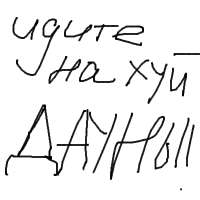 идите
на хуй
ДАУНЫ